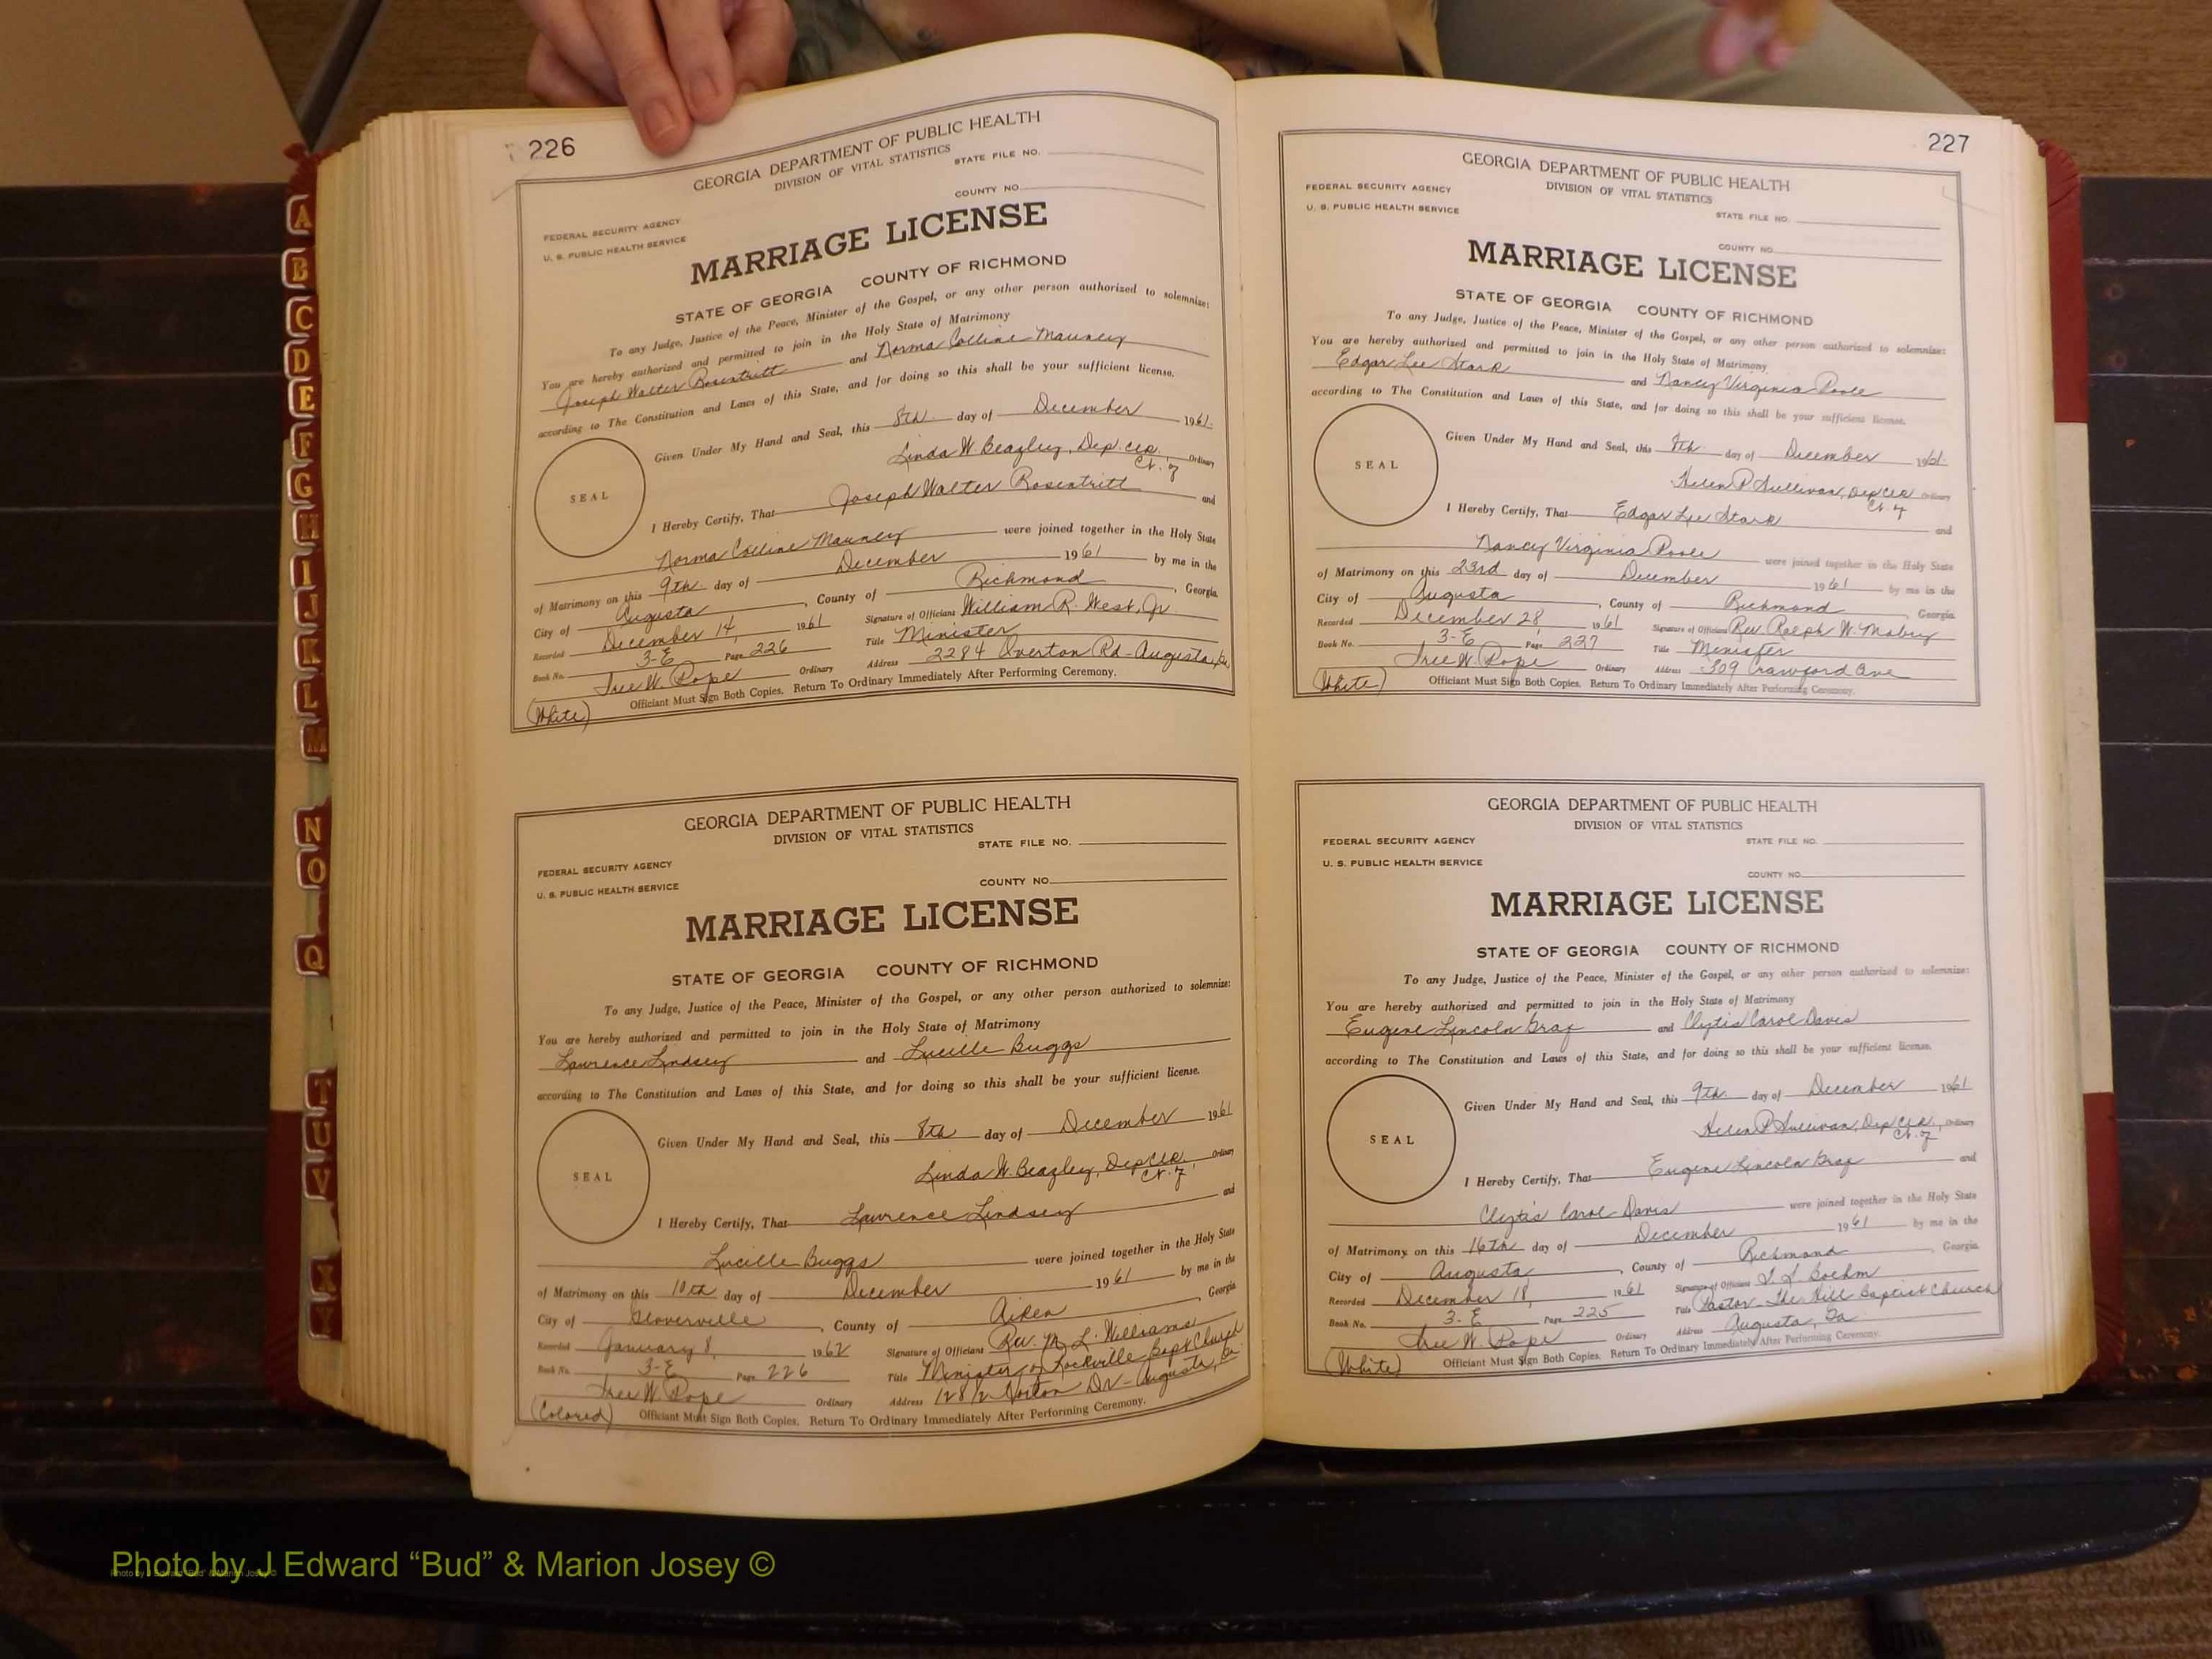 226
GEORGIA DEPARTMENT OF PUBLIC HEALTH
DIVISION OF VITAL STATISTICS
STATE FILE NO.
COUNTY NO.
FEDERAL SECURITY AGENCY
U. S. PUBLIC HEALTH SERVICE
MARRIAGE LICENSE
STATE OF GEORGIA COUNTY OF RICHMOND
To any Judge, Justice of the Peace, Minister of the Gospel, or any other person authorized to solemnize:
You are hereby authorized and permitted to join in the Holy State of Matrimony
Joseph Walter Rosentritt and Norma Colline Mauney
according to The Constitution and Laws of this State, and for doing so this shall be your sufficient license.
Given Under My Hand and Seal, this 8th day of December 1961.
Linda W. Beazley, Dep. Clk. Ordinary
Ct. of
SEAL
I Hereby Certify, That Joseph Walter Rosentritt and
Norma Colline Mauney were joined together in the Holy State
of Matrimony on this 9th day of December 1961 by me in the
City of Augusta, County of Richmond, Georgia.
Recorded December 14, 1961 Signature of Officiant William R. West, Jr.
Book No. 3-E Page 226 Title Minister
Tree W. Pope Ordinary Address 2284 Overton Rd - Augusta, Ga.
(White) Officiant Must Sign Both Copies. Return To Ordinary Immediately After Performing Ceremony.
GEORGIA DEPARTMENT OF PUBLIC HEALTH
DIVISION OF VITAL STATISTICS
STATE FILE NO.
FEDERAL SECURITY AGENCY
U. S. PUBLIC HEALTH SERVICE
COUNTY NO.
MARRIAGE LICENSE
STATE OF GEORGIA COUNTY OF RICHMOND
To any Judge, Justice of the Peace, Minister of the Gospel, or any other person authorized to solemnize:
You are hereby authorized and permitted to join in the Holy State of Matrimony
Lawrence Lindsey and Lucille Buggs
according to The Constitution and Laws of this State, and for doing so this shall be your sufficient license.
Given Under My Hand and Seal, this 8th day of December 1961
Linda W. Beazley, Dep Clk. Ordinary
Ct. of
SEAL
I Hereby Certify, That Lawrence Lindsey and
Lucille Buggs were joined together in the Holy State
of Matrimony on this 10th day of December 1961 by me in the
City of Gloverville, County of Aiken Georgia
Recorded January 8, 1962 Signature of Officiant Rev. M. L. Williams
Book No. 3-E Page 226 Title Minister of Bapt Church
Tree W. Pope Ordinary Address Dr - Augusta, Ga.
(Colored) Officiant Must Sign Both Copies. Return To Ordinary Immediately After Performing Ceremony.
227
GEORGIA DEPARTMENT OF PUBLIC HEALTH
DIVISION OF VITAL STATISTICS
FEDERAL SECURITY AGENCY
U. S. PUBLIC HEALTH SERVICE
STATE FILE NO.
COUNTY NO.
MARRIAGE LICENSE
STATE OF GEORGIA COUNTY OF RICHMOND
To any Judge, Justice of the Peace, Minister of the Gospel, or any other person authorized to solemnize:
You are hereby authorized and permitted to join in the Holy State of Matrimony
Edgar Lee Stark and Nancy Virginia Poole
according to The Constitution and Laws of this State, and for doing so this shall be your sufficient license.
Given Under My Hand and Seal, this 8th day of December 1961.
Helen P. Sullivan, Dep Clk Ordinary
Ct. of
SEAL
I Hereby Certify, That Edgar Lee Stark and
Nancy Virginia Poole were joined together in the Holy State
of Matrimony on this 23rd day of December 1961 by me in the
City of Augusta, County of Richmond, Georgia.
Recorded December 28, 1961 Signature of Officiant Rev. Ralph W. Mabry
Book No. 3-E Page 227 Title Minister
Tree W. Pope Ordinary Address 309 Crawford Ave
(White) Officiant Must Sign Both Copies. Return To Ordinary Immediately After Performing Ceremony.
GEORGIA DEPARTMENT OF PUBLIC HEALTH
DIVISION OF VITAL STATISTICS
FEDERAL SECURITY AGENCY STATE FILE NO.
U. S. PUBLIC HEALTH SERVICE
COUNTY NO.
MARRIAGE LICENSE
STATE OF GEORGIA COUNTY OF RICHMOND
To any Judge, Justice of the Peace, Minister of the Gospel, or any other person authorized to solemnize:
You are hereby authorized and permitted to join in the Holy State of Matrimony
Eugene Lincoln Graf and Clytis Carol Davis
according to The Constitution and Laws of this State, and for doing so this shall be your sufficient license.
Given Under My Hand and Seal, this 9th day of December 1961
Helen P. Sullivan, Dep Clk., Ordinary
Ct. of
SEAL
I Hereby Certify, That Eugene Lincoln Graf and
Clytis Carol Davis were joined together in the Holy State
of Matrimony on this 16th day of December 1961 by me in the
City of Augusta, County of Richmond, Georgia.
Recorded December 18, 1961 Signature of Officiant Boehm
Book No. 3-E Page 225 Title Pastor - The Hill Baptist Church
Tree W. Pope Ordinary Address Augusta, Ga
(White) Officiant Must Sign Both Copies. Return To Ordinary Immediately After Performing Ceremony.
A
B
C
D
E
F
G
H
I
J
K
L
M
N
O
Q
T
U
V
X
Y
Photo by J Edward “Bud” & Marion Josey ©
Photo by J Edward “Bud” & Marion Josey ©